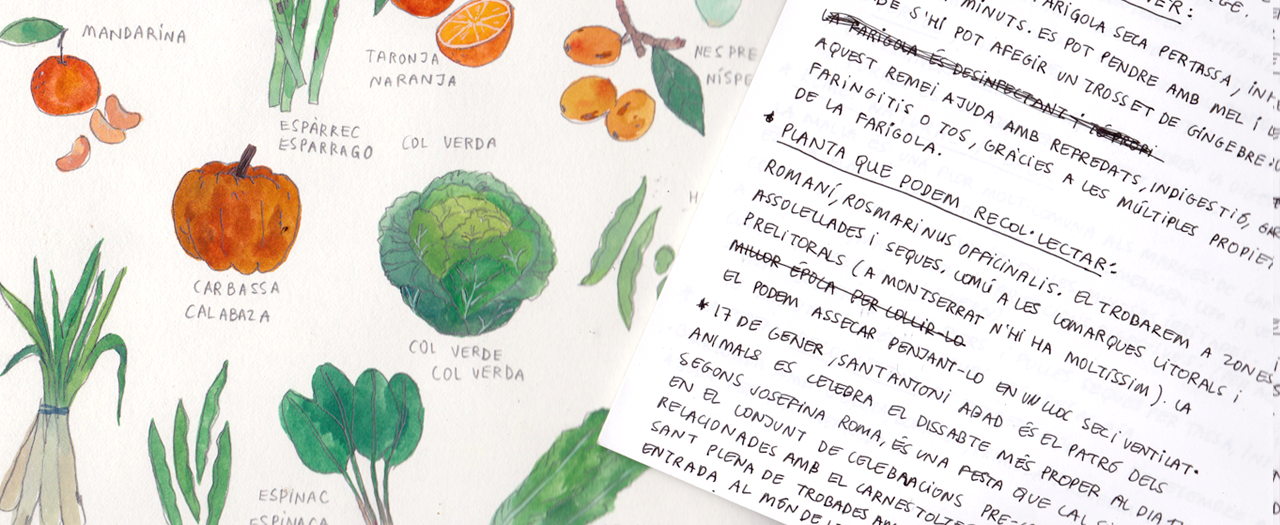 MANDARINA
TARONJA
NARANJA
NESPRE
NÍSPE
ESPÀRREC
ESPARRAGO
COL VERDA
CARBASSA
CALABAZA
COL VERDE
COL VERDA
ESPINAC
ESPINACA
VER:
FARIGOLA SECA PER TASSA, INF
MINUTS. ES POT PENDRE AMB MEL I
DE S'HI POT AFEGIR UN TROSSET DE GINGEBRE
LA FARIGOLA ÉS DESINFECTANT I
AQUEST REMEI AJUDA AMB REFREDATS, INDIGESTIÓ,
FARINGITIS O TOS, GRÀCIES A LES MÚLTIPLES PROPIET
DE LA FARIGOLA.
* PLANTA QUE PODEM RECOL·LECTAR:
ROMANÍ, ROSMARINUS OFFICINALIS. EL TROBAREM A ZONES
ASSOLELLADES I SEQUES, COMÚ A LES COMARQUES LITORALS I
PRELITORALS (A MONTSERRAT N'HI HA MOLTÍSSIM). LA
MILLOR ÉPOCA PER COLLIR-LO
EL PODEM ASSECAR PENJANT-LO EN UN LLOC SEC I VENTILAT.
* 17 DE GENER, SANT ANTONI ABAD ÉS EL PATRÓ DELS
ANIMALS ES CELEBRA EL DISSABTE MÉS PROPER AL DIA 17
SEGONS JOSEFINA ROMA, ÉS UNA FESTA QUE CAL
EN EL CONJUNT DE CELEBRACIONS PRE-
RELACIONADES AMB EL CARNESTOLTES
SANT PLENA DE TROBADES AM
ENTRADA AL MÓN DE L